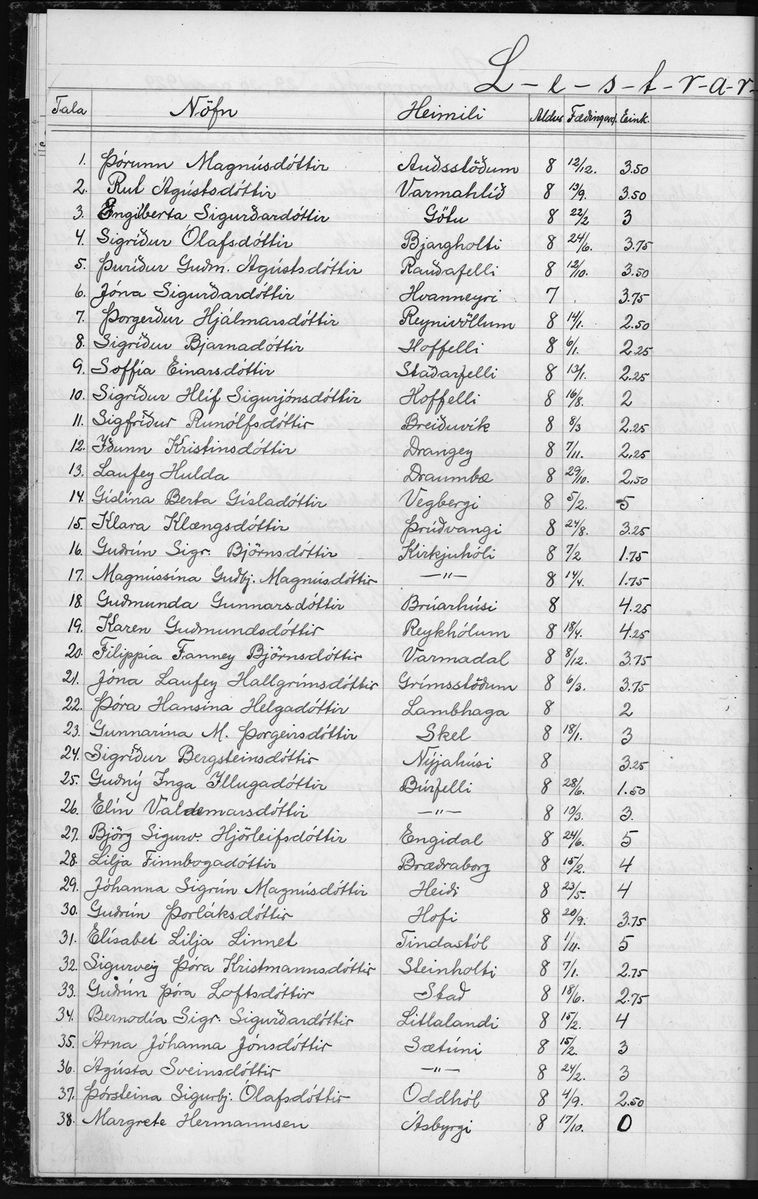 L-e-s-t-r-a-r-
Tala Nöfn Heimili Aldur Fæðingard. Eink.
1. Þórunn Magnúsdóttir Auðsstöðum 8 12/12. 3.50
2. Rut Ágústsdóttir Varmahlíð 8 13/9. 3.50
3. Engilberta Sigurðardóttir Götu 8 22/2 3
4. Sigríður Ólafsdóttir Bjargholti 8 24/6. 3.75
5. Þuríður Guðm. Ágústsdóttir Rauðafelli 8 12/10. 3.50
6. Jóna Sigurðardóttir Hvanneyri 7 . 3.75
7. Þorgerður Hjálmarsdóttir Reynivöllum 8 14/1. 2.50
8. Sigríður Bjarnadóttir Hoffelli 8 6/1. 2.25
9. Soffía Einarsdóttir Staðarfelli 8 13/1. 2.25
10. Sigríður Hlíf Sigurjónsdóttir Hoffelli 8 16/8. 2
11. Sigfríður Runólfsdóttir Breiðuvík 8 8/3 2.25
12. Iðunn Kristinsdóttir Drangey 8 7/11. 2.25
13. Laufey Hulda Draumbæ 8 29/10. 2.50
14. Gislína Berta Gísladóttir Vegbergi 8 5/2. 5
15. Klara Klængsdóttir Þrúðvangi 8 24/8. 3.25
16. Guðrún Sigr. Björnsdóttir Kirkjuhóli 8 7/2 1.75
17. Magnússína Guðbj. Magnúsdóttir —"— 8 14/4. 1.75
18. Guðmunda Gunnarsdóttir Brúarhúsi 8 4.25
19. Karen Guðmundsdóttir Reykhólum 8 18/4. 4.25
20. Filippía Fanney Björnsdóttir Varmadal 8 8/12. 3.75
21. Jóna Laufey Hallgrímsdóttir Grímsstöðum 8 6/3. 3.75
22. Þóra Hansína Helgadóttir Lambhaga 8 2
23. Gunnarína M. Þorgeirsdóttir Skel 8 18/1. 3
24. Sigríður Bergsteinsdóttir Nýjahúsi 8 3.25
25. Guðný Inga Illugadóttir Búrfelli 8 28/6. 1.50
26. Elín Valdemarsdóttir —"— 8 19/3. 3.
27. Björg Sigurv. Hjörleifsdóttir Engidal 8 24/6. 5
28. Lilja Finnbogadóttir Bræðraborg 8 15/2. 4
29. Jóhanna Sigrún Magnúsdóttir Heiði 8 23/5. 4
30. Guðrún Þorláksdóttir Hofi 8 20/9. 3.75
31. Elísabet Lilja Linnet Tindastól 8 1/11. 5
32. Sigurveig Þóra Kristmannsdóttir Steinholti 8 7/1. 2.75
33. Guðrún Þóra Loftsdóttir Stað 8 18/6. 2.75
34. Bernodía Sigr. Sigurðardóttir Litlalandi 8 15/2. 4
35. Arna Jóhanna Jónsdóttir Sætúni 8 15/2. 3
36. Ágústa Sveinsdóttir —"— 8 24/2. 3
37. Þórsteina Sigurbj. Ólafsdóttir Oddhól 8 4/9. 2.50
38. Margrete Hermannsen Ásbyrgi 8 17/10. 0